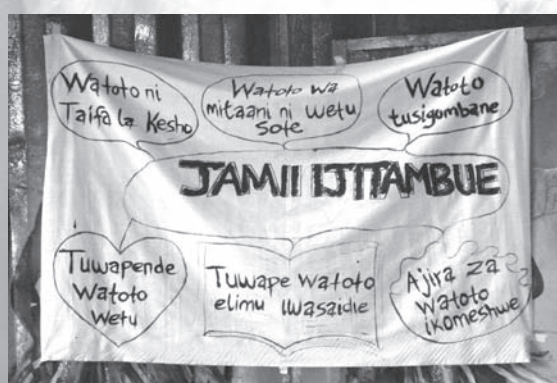 Watoto ni
Taifa la Kesho
Watoto wa
mitaani ni wetu
sote
Watoto
tusigombane
JAMII IJITAMBUE
Tuwapende
Watoto
wetu
Tuwape watoto
elimu iwasaidie
Ajira za
watoto
ikomeshwe